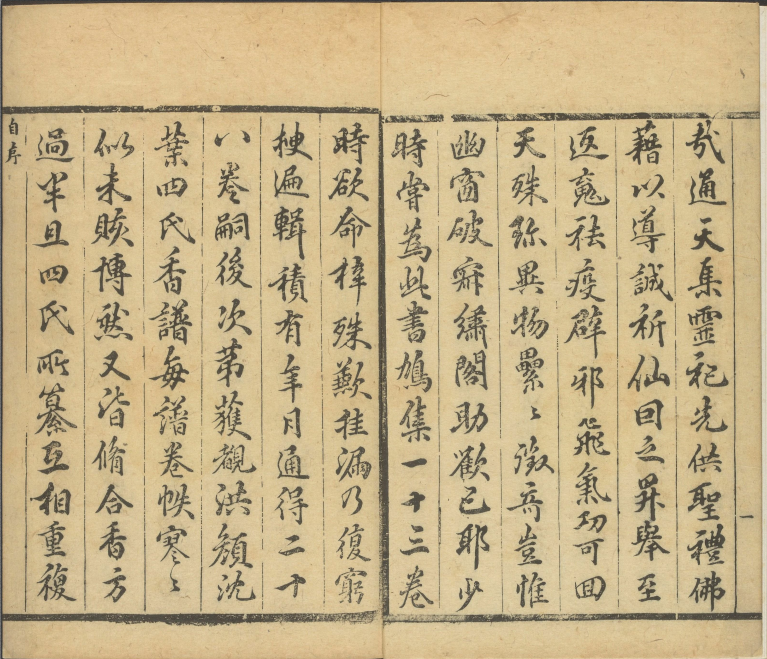 一
哉通天集靈祀先供聖禮佛
藉以導誠祈仙因之昇舉至
返䰟祛疫辟邪飛氣功可回
天殊珎異物纍〻徵奇豈惟
幽窗破寂繡閣助歡已耶少
時嘗為此書鳩集一十三卷
時欲命梓殊歉挂漏乃復窮
搜遍輯積有年月通得二十
八卷嗣後次第獲覩洪顔沈
葉四氏香譜每譜卷帙寥〻
似未賅博然又皆脩合香方
過半且四氏所纂互相重複
自序